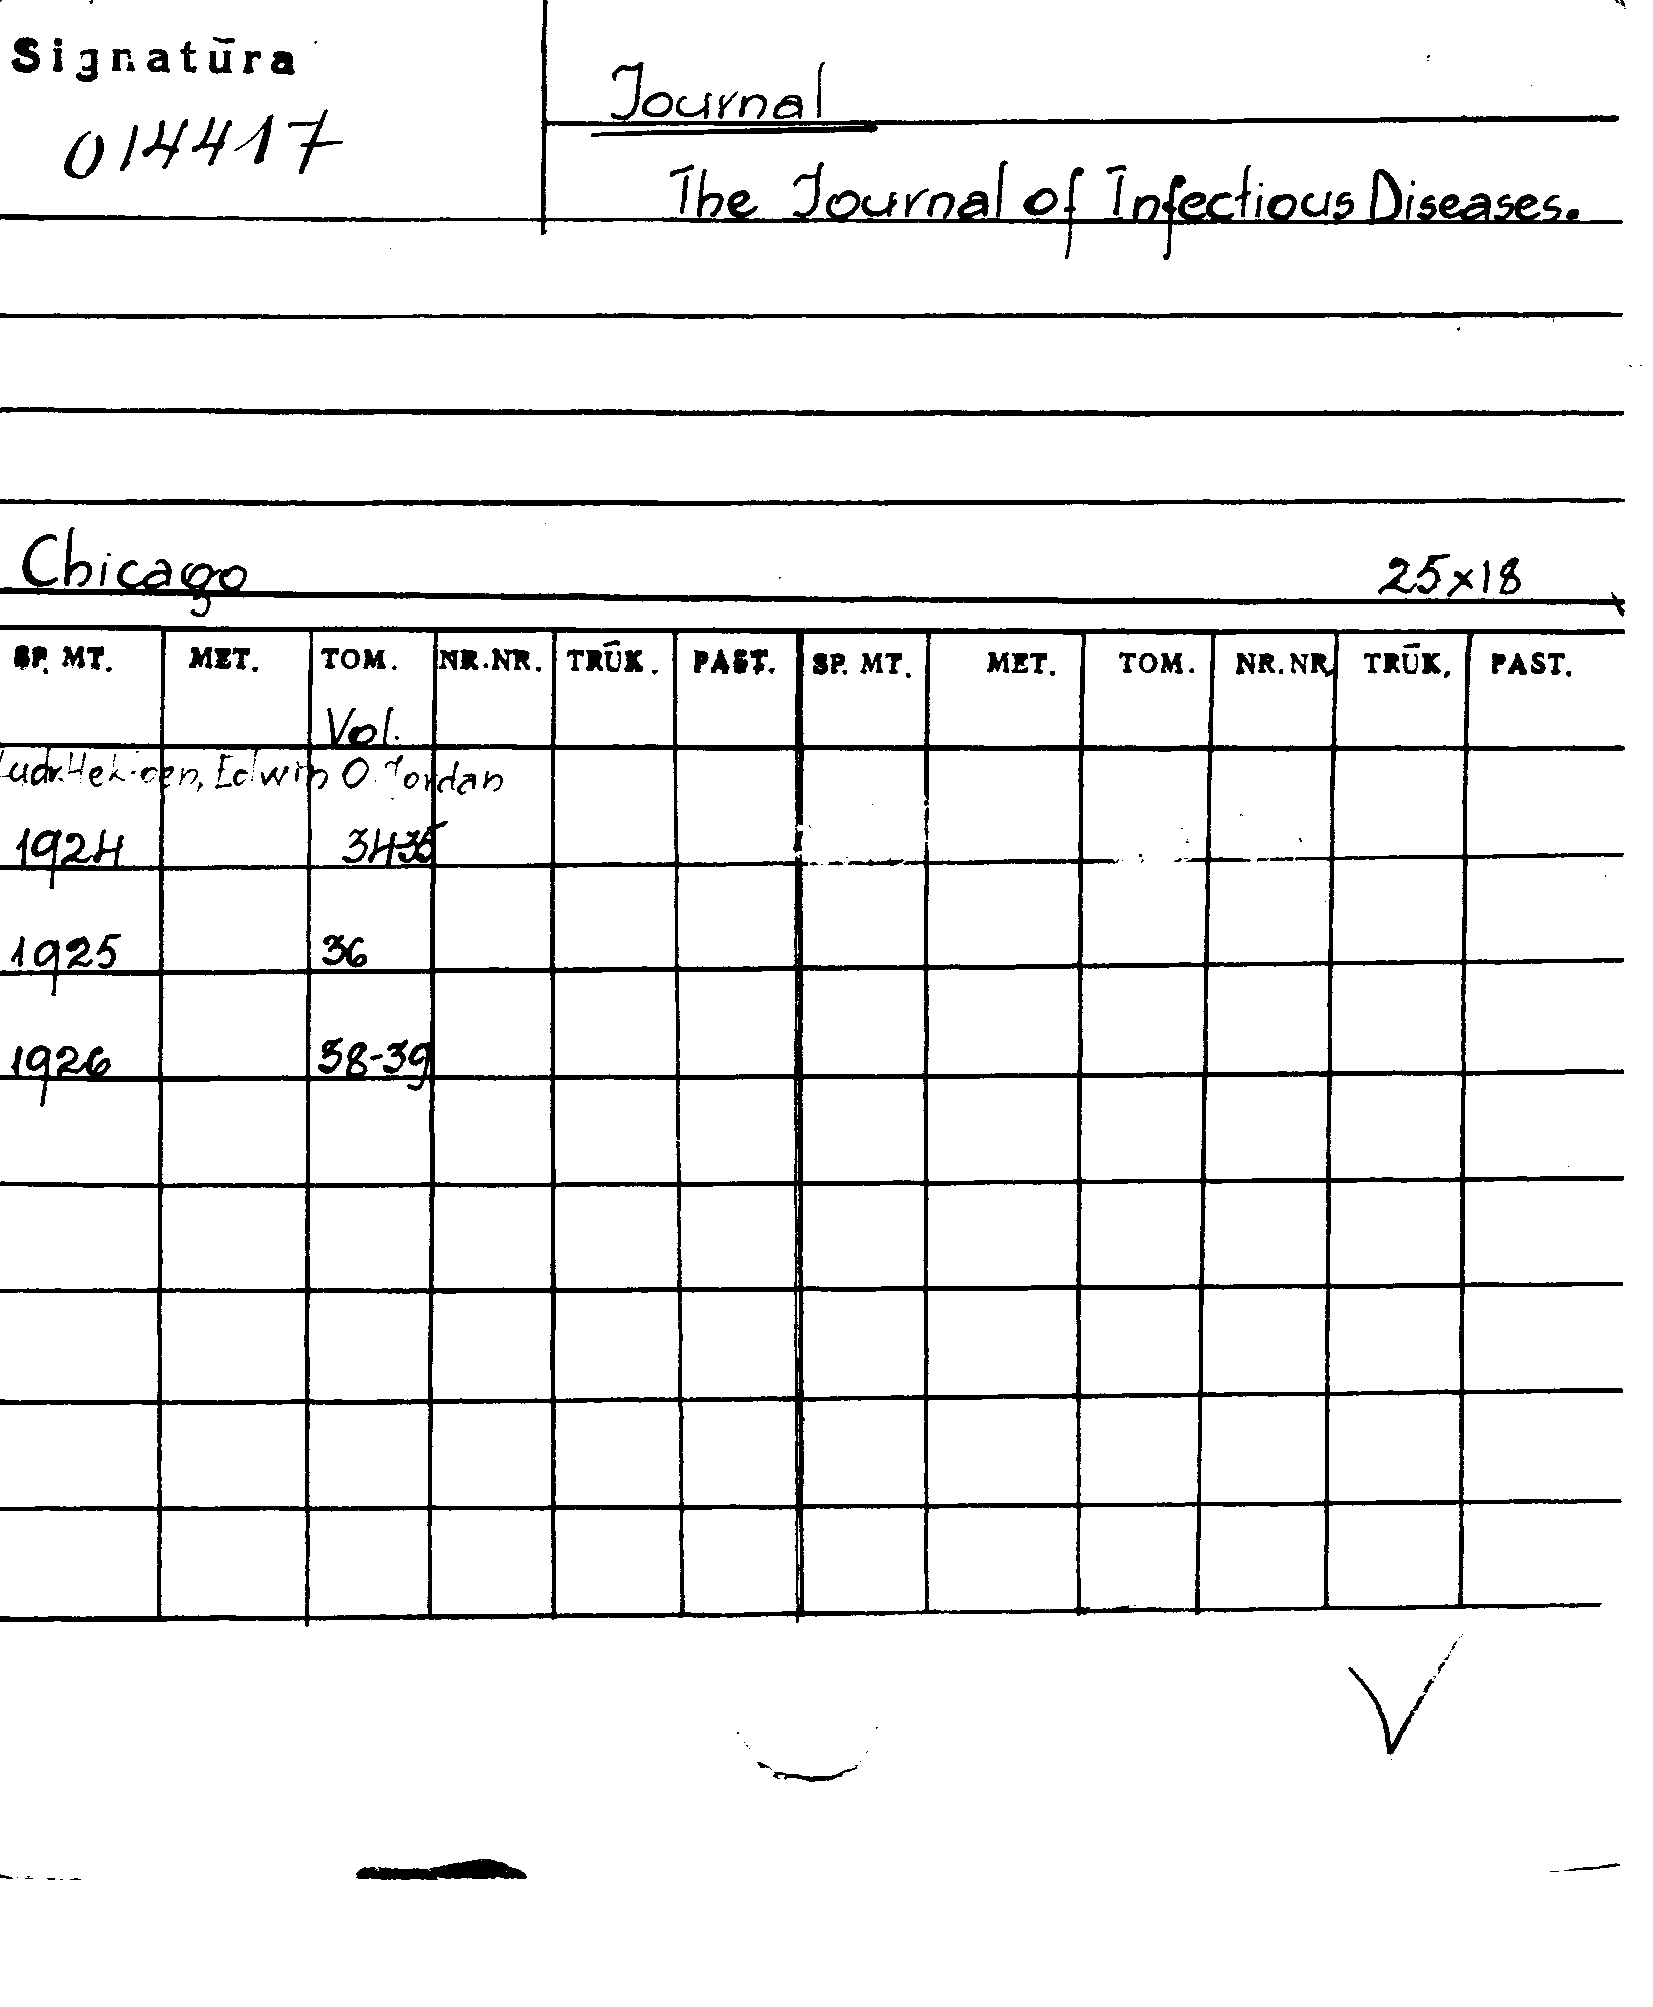 Signatūra
014417
Journal
The Journal of Infectious Diseases.
Chicago 25x18
SP. MT. MET. TOM. NR.NR. TRŪK. PAST. SP. MT. MET. TOM. NR.NR. TRŪK. PAST.
Vol.
Edwin O. Jordan
1924 3435
1925 36
1926 38-39